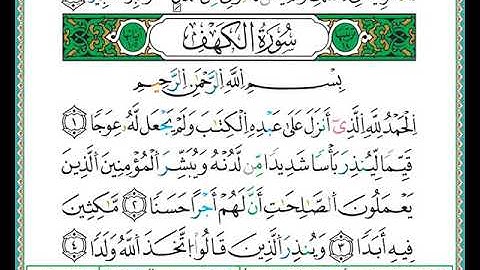 سُورَةُ الْكَهْفِ
بِسْمِ اللَّهِ الرَّحْمَٰنِ الرَّحِيمِ
الْحَمْدُ لِلَّهِ الَّذِىٓ أَنزَلَ عَلَىٰ عَبْدِهِ الْكِتَابَ وَلَمْ يَجْعَل لَّهُۥ عِوَجَا ١
قَيِّمًا لِّيُنذِرَ بَأْسًا شَدِيدًا مِّن لَّدُنْهُ وَيُبَشِّرَ الْمُؤْمِنِينَ الَّذِينَ
يَعْمَلُونَ الصَّالِحَاتِ أَنَّ لَهُمْ أَجْرًا حَسَنًا ٢ مَّاكِثِينَ
فِيهِ أَبَدًا ٣ وَيُنذِرَ الَّذِينَ قَالُوا اتَّخَذَ اللَّهُ وَلَدًا ٤